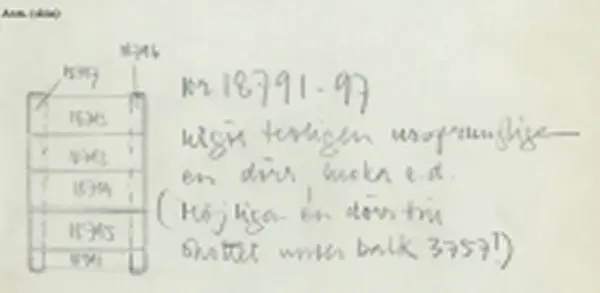 Anm. (skiss)
18796
18797
nr 18791-97
18793
utgör troligen ursprungligen
en dörr, lucka e.d.
18794
(Möjligen en dörr till
18795
skottet under balk 3757!)
18791